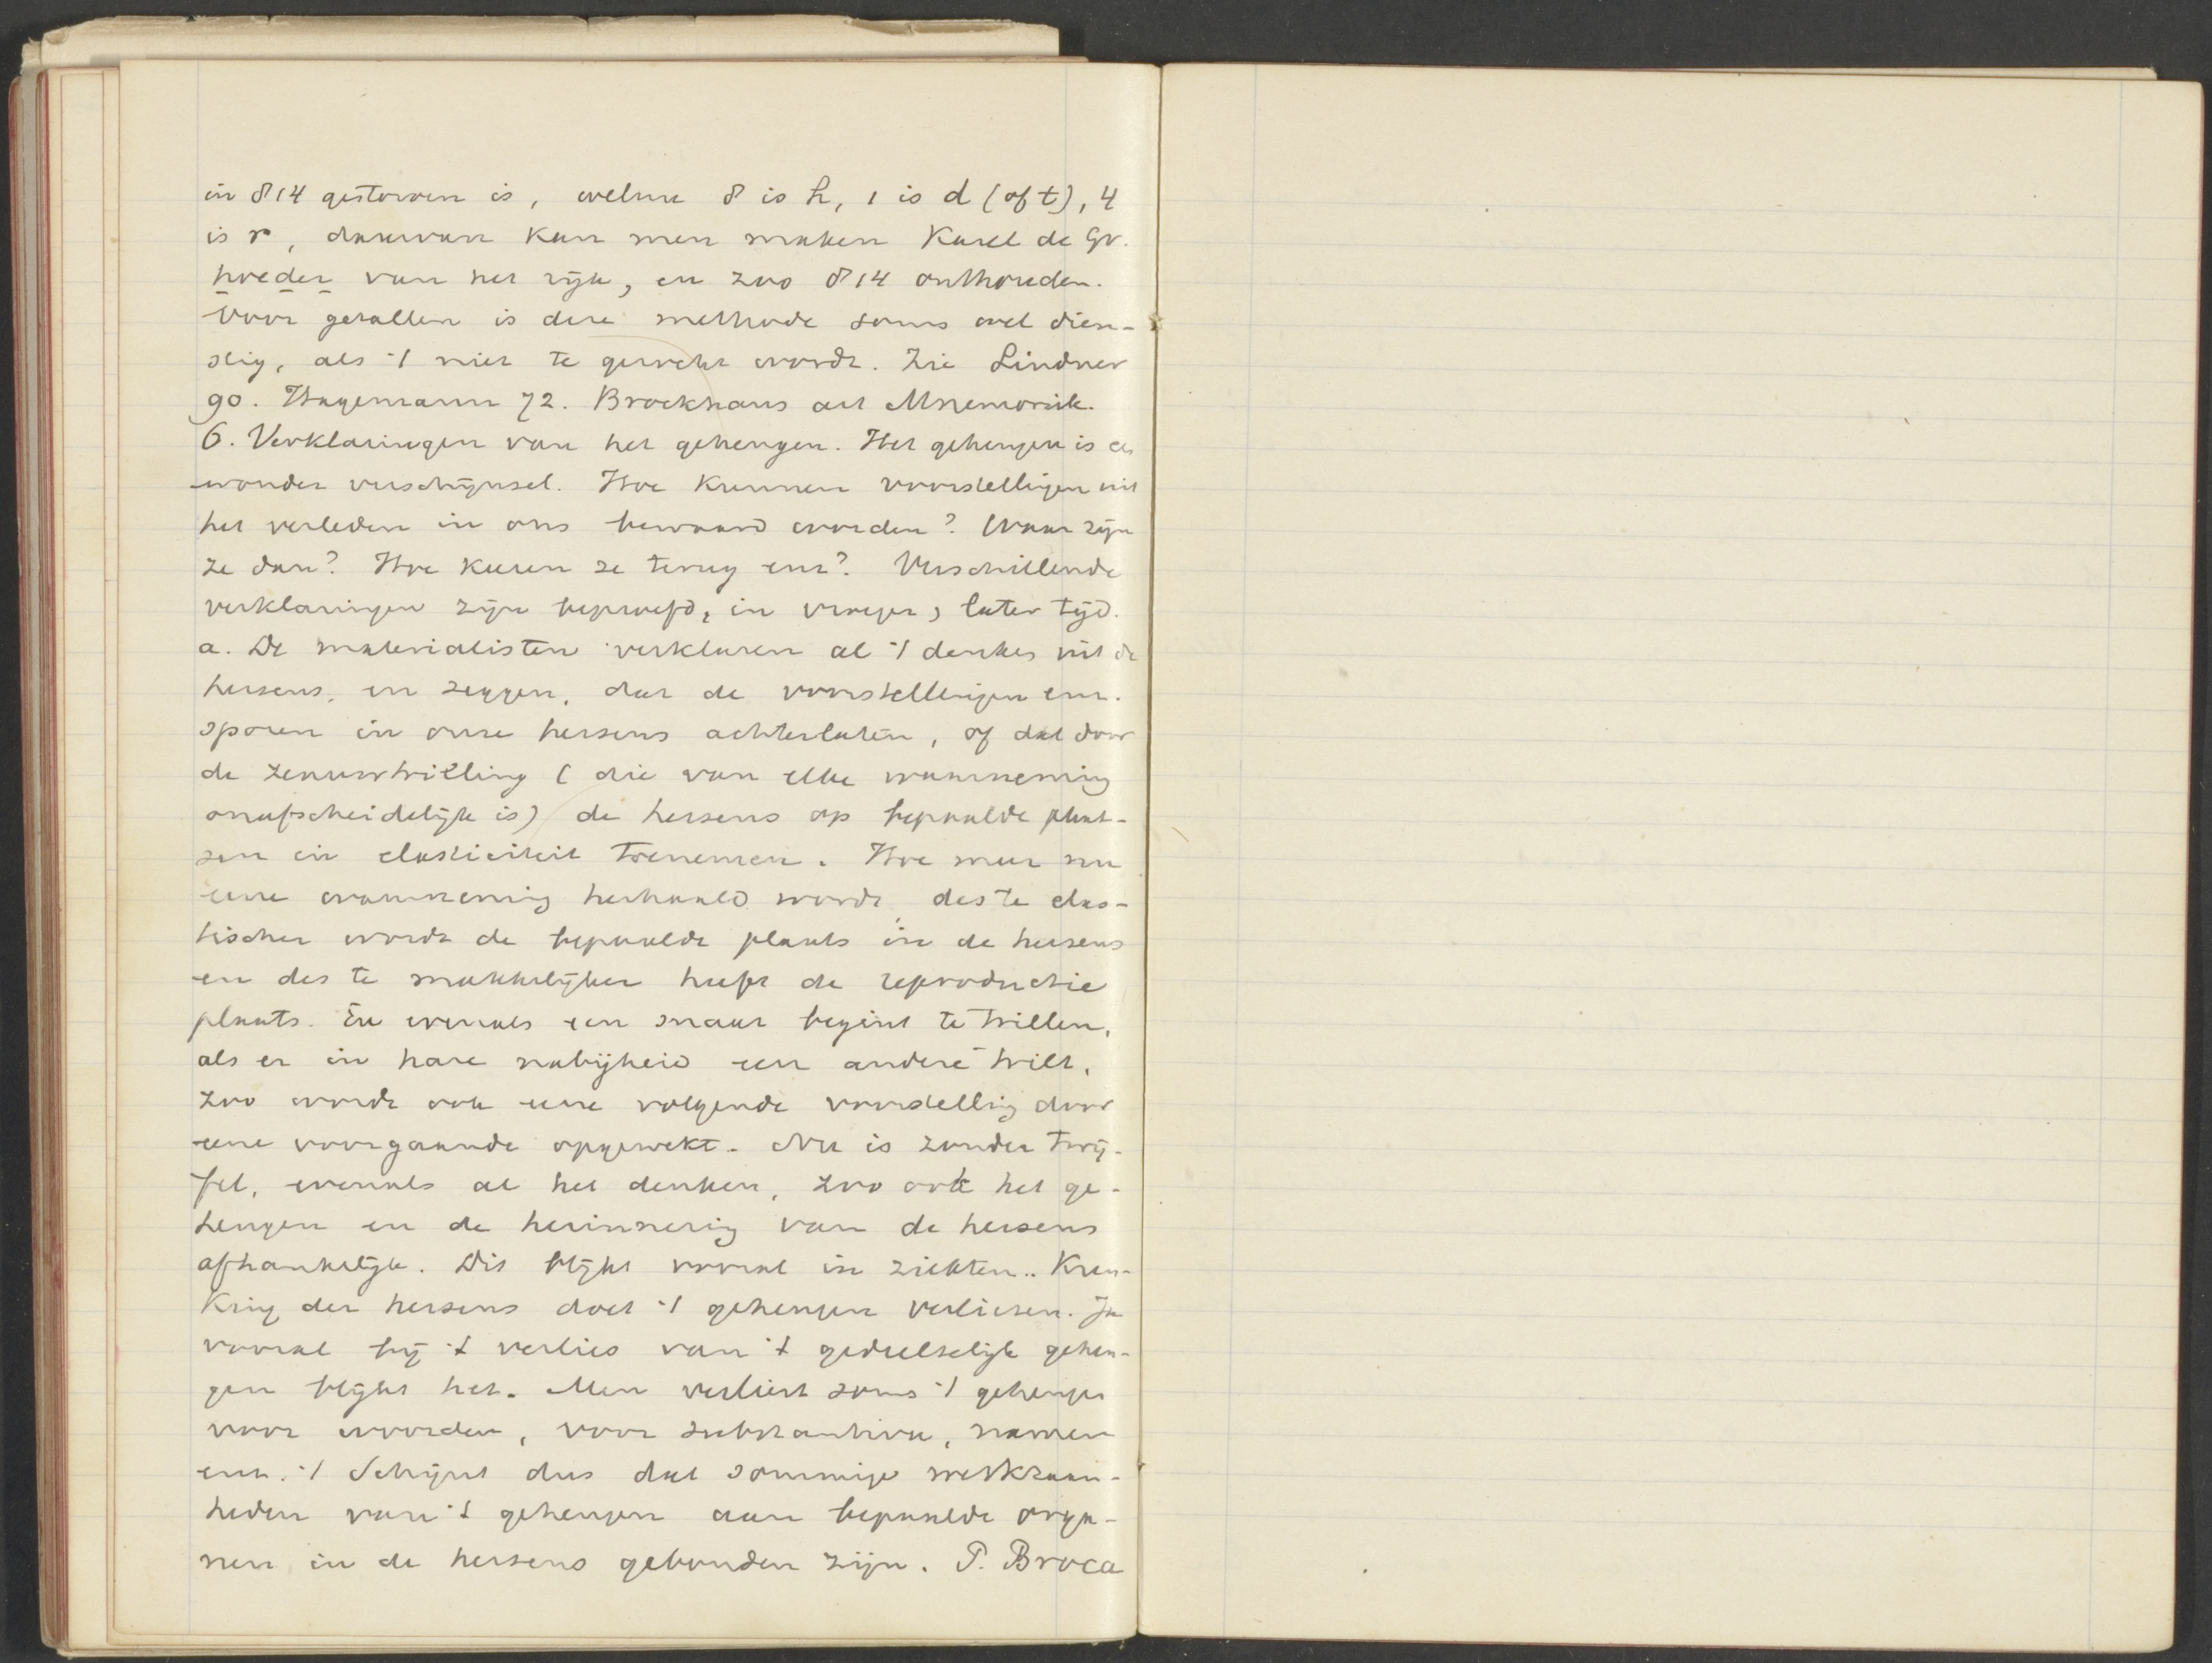 in 814 gestorven is, welnu 8 is h, 1 is d (of t), 4
is r, daarvan kan men maken Karel de Gr.
hoeder van het rijk, en zoo 814 onthouden.
Voor getallen is deze methode soms wel dien-
stig, als 't niet te gezocht wordt. Zie Lindner
90. Hagemann 72. Brockhaus art Mnemonik.
6. Verklaringen van het geheugen. Het geheugen is een
wonder verschijnsel. Hoe kunnen voorstellingen uit
het verleden in ons bewaard worden? Waar zijn
ze dan? Hoe keeren ze terug enz? Verschillende
verklaringen zijn beproefd, in vroeger, later tijd.
a. De materialisten verklaren al 't denken uit de
hersens, en zeggen, dat de voorstellingen enz.
sporen in onze hersens achterlaten, of dat door
de zenuwtrilling (die van elke waarneming
onafscheidelijk is) de hersens op bepaalde plaat-
sen in elasticiteit toenemen. Hoe meer nu
eene waarneming herhaald wordt, des te elas-
tischer wordt de bepaalde plaats in de hersens
en des te makkelijker heeft de reproductie
plaats. En evenals een snaar begint te trillen,
als er in hare nabijheid een andere trilt,
zoo wordt ook eene volgende voorstelling door
eene voorgaande opgewekt. Nu is zonder twij-
fel, evenals al het denken, zoo ook het ge-
heugen en de herinnering van de hersens
afhankelijk. Dit blijkt vooral in ziekten.. Kren-
king der hersens doet 't geheugen verliezen. Ja
vooral bij 't verlies van 't gedeeltelijk geheu-
gen blijkt het. Men verliest soms 't geheugen
voor woorden, voor substantiva, namen
enz. 't Schijnt dus dat sommige werkzaam-
heden van 't geheugen aan bepaalde orga-
nen in de hersens gebonden zijn. P. Broca